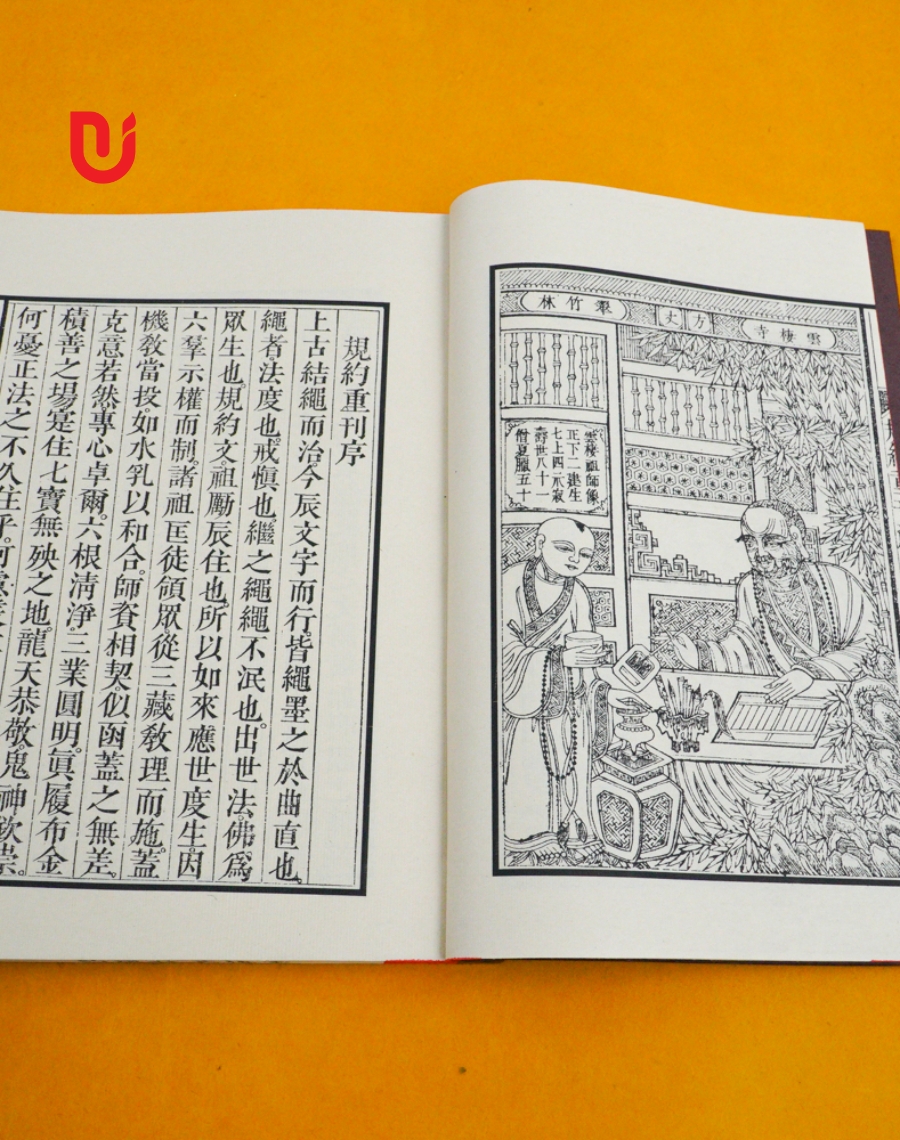 雲棲寺
方丈
翠竹林
雲棲祖師像
正下二建生
七上四示寂
壽世八十一
僧夏臘五十
規約重刊序
上古結繩而治。今辰文字而行。皆繩墨之於曲直也。
繩者。法度也。戒慎也。繼之繩繩不泯也。出世法。佛爲
眾生也。規約文。祖勵辰住也。所以如來應世度生。因
六羣示權而制。諸祖匡徒領眾。從三藏教理而施。蓋
機教當投。如水乳以和合。師資相契。似函蓋之無差。
克意若然。專心卓爾。六根清淨。三業圓明。真履布金
積善之場。寔住七寶無殃之地。龍天恭敬。鬼神欽崇。
何憂正法之不久住乎。何